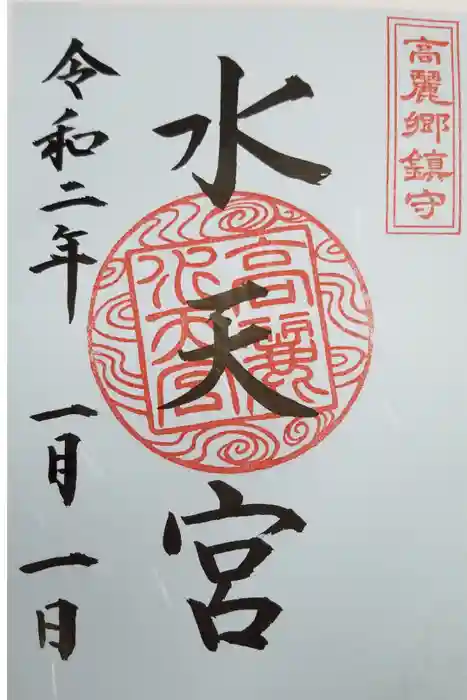 高麗郷鎮守
水天宮
高麗
水天宮
令和二年 一月 一日